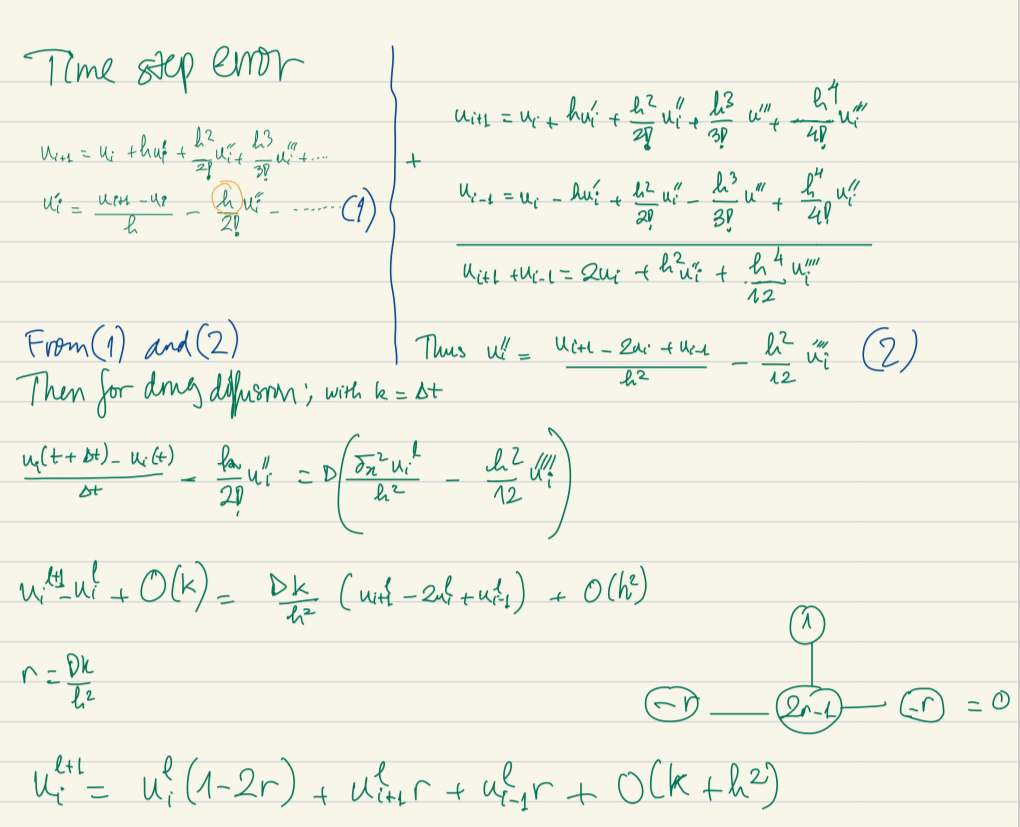 Time step error
u_{i+1} = u_i + hu_i' + \frac{h^2}{2!} u_i'' + \frac{h^3}{3!} u_i''' + ....
u_i' = \frac{u_{i+1} - u_i}{h} - \frac{h}{2!} u_i'' - ...... (1)
u_{i+1} = u_i + hu_i' + \frac{h^2}{2!} u_i'' + \frac{h^3}{3!} u''' + \frac{h^4}{4!} u_i''''
+
u_{i-1} = u_i - hu_i' + \frac{h^2}{2!} u_i'' - \frac{h^3}{3!} u''' + \frac{h^4}{4!} u_i''''
u_{i+1} + u_{i-1} = 2u_i + h^2 u_i'' + \frac{h^4}{12} u_i''''
Thus u_i'' = \frac{u_{i+1} - 2u_i + u_{i-1}}{h^2} - \frac{h^2}{12} u_i'''' (2)
From (1) and (2)
Then for drug diffusion; with k = Δt
\frac{u_i(t + Δt) - u_i(t)}{Δt} - \frac{k}{2!} u_i'' = D \left( \frac{δx^2 u_i^l}{h^2} - \frac{h^2}{12} u_i'''' \right)
u_i^{l+1} - u_i^l + O(k) = \frac{Dk}{h^2} (u_{i+1}^l - 2u_i^l + u_{i-1}^l) + O(h^2)
r = \frac{Dk}{h^2}
1
-r 2r-1 -r = 0
u_i^{l+1} = u_i^l (1-2r) + u_{i+1}^l r + u_{i-1}^l r + O(k + h^2)